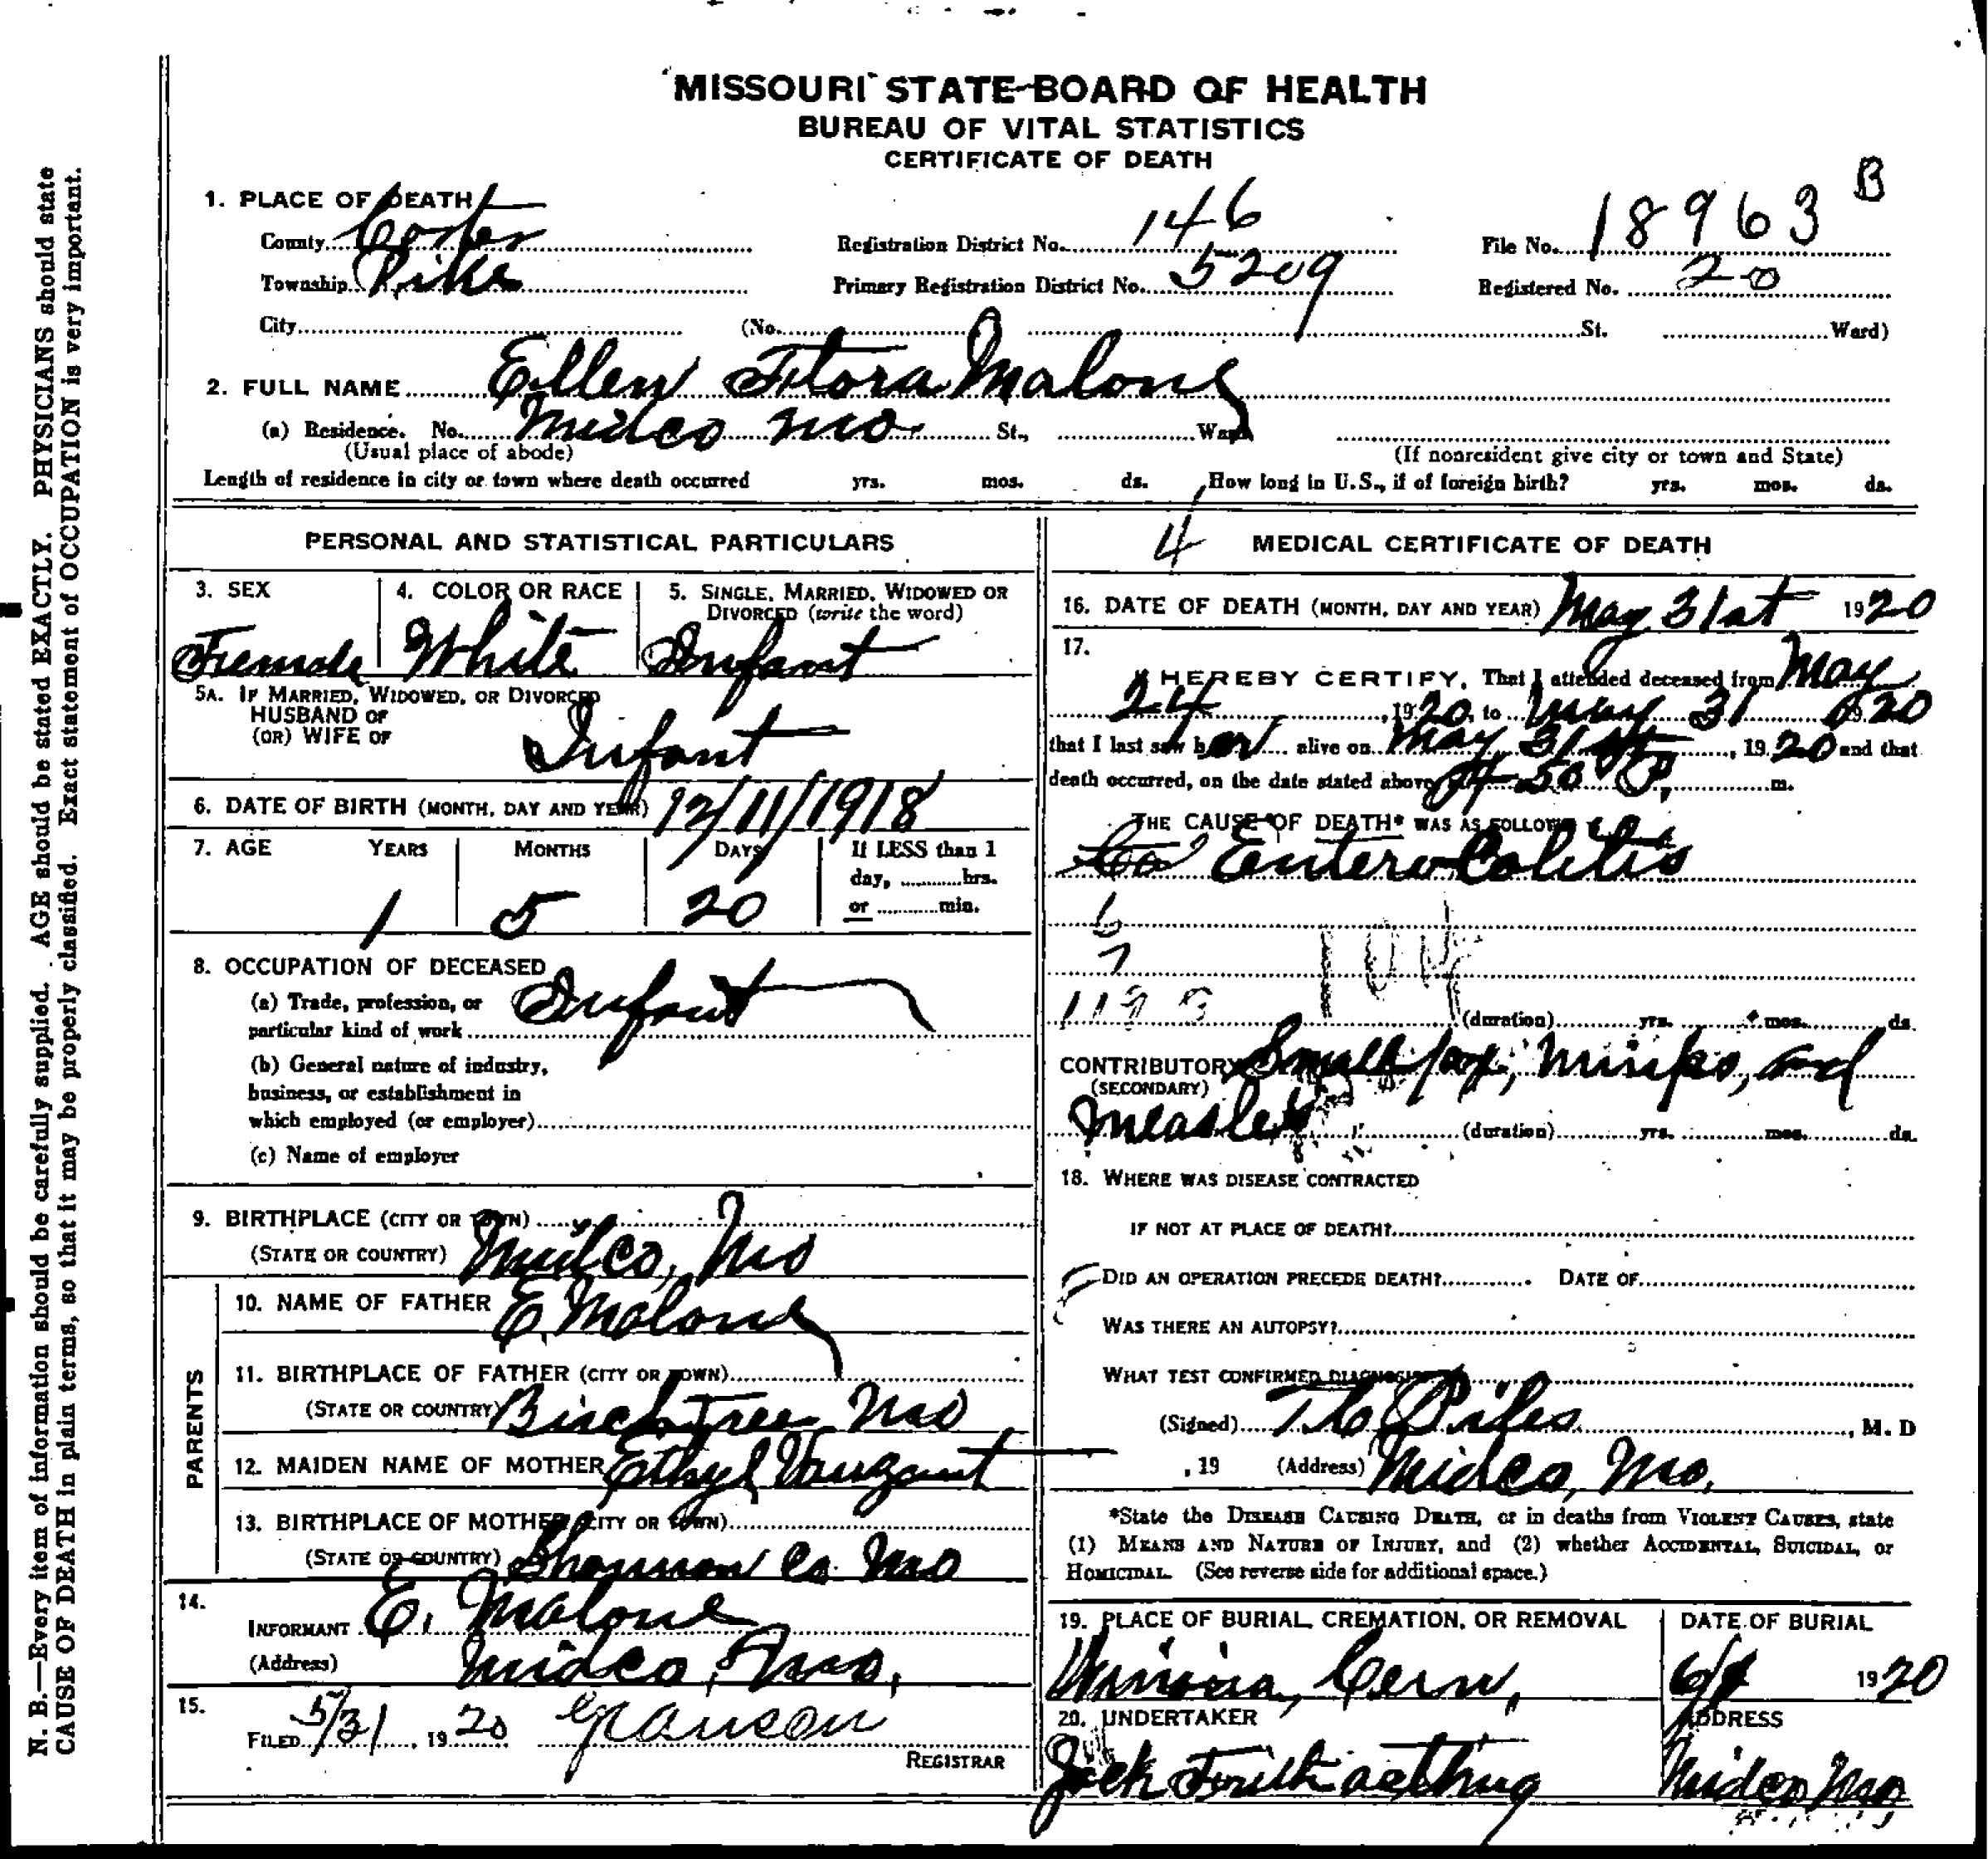 MISSOURI STATE BOARD OF HEALTH
BUREAU OF VITAL STATISTICS
CERTIFICATE OF DEATH
1. PLACE OF DEATH
County Carter Registration District No. 146 File No. 18963 B
Township Pike Primary Registration District No. 5209 Registered No. 20
City (No. St. Ward)
2. FULL NAME Ellen Flora Malone
(a) Residence. No. Midco Mo. St., Ward
(Usual place of abode) (If nonresident give city or town and State)
Length of residence in city or town where death occurred yrs. mos. ds. How long in U.S., if of foreign birth? yrs. mos. ds.
PERSONAL AND STATISTICAL PARTICULARS
3. SEX 4. COLOR OR RACE 5. SINGLE, MARRIED, WIDOWED OR
DIVORCED (write the word)
Female White Infant
5A. IF MARRIED, WIDOWED, OR DIVORCED
HUSBAND OF
(OR) WIFE OF Infant
6. DATE OF BIRTH (MONTH, DAY AND YEAR) 12/11/1918
7. AGE YEARS MONTHS DAYS If LESS than 1
day, hrs.
or min.
1 5 20
8. OCCUPATION OF DECEASED
(a) Trade, profession, or
particular kind of work Infant
(b) General nature of industry,
business, or establishment in
which employed (or employer)
(c) Name of employer
9. BIRTHPLACE (CITY OR TOWN)
(STATE OR COUNTRY) Midco, Mo
PARENTS
10. NAME OF FATHER E. Malone
11. BIRTHPLACE OF FATHER (CITY OR TOWN)
(STATE OR COUNTRY) Birch Tree Mo
12. MAIDEN NAME OF MOTHER Ethyl Vanzant
13. BIRTHPLACE OF MOTHER (CITY OR TOWN)
(STATE OR COUNTRY) Shannon Co. Mo
14.
INFORMANT E. Malone
(Address) Midco, Mo.
15.
FILED 5/31, 1920
REGISTRAR
4 MEDICAL CERTIFICATE OF DEATH
16. DATE OF DEATH (MONTH, DAY AND YEAR) May 31st 1920
17.
I HEREBY CERTIFY, That I attended deceased from May
24, 1920, to May 31 1920
that I last saw her alive on May 31st, 1920 and that
death occurred, on the date stated above, at 50 P. m.
THE CAUSE OF DEATH* WAS AS FOLLOWS
Entero Colitis
6
7
104
(duration) yrs. mos. ds.
CONTRIBUTORY Small pox, Mumps, and
(SECONDARY)
Measles (duration) yrs. mos. ds.
18. WHERE WAS DISEASE CONTRACTED
IF NOT AT PLACE OF DEATH?
DID AN OPERATION PRECEDE DEATH? DATE OF
WAS THERE AN AUTOPSY?
WHAT TEST CONFIRMED DIAGNOSIS?
(Signed) Piles, M. D
, 19 (Address) Midco, Mo.
*State the DISEASE CAUSING DEATH, or in deaths from VIOLENT CAUSES, state
(1) MEANS AND NATURE OF INJURY, and (2) whether ACCIDENTAL, SUICIDAL, or
HOMICIDAL. (See reverse side for additional space.)
19. PLACE OF BURIAL, CREMATION, OR REMOVAL DATE OF BURIAL
Winona, Cem, 6/1 1920
20. UNDERTAKER ADDRESS
Jack Midco Mo.
N. B.—Every item of information should be carefully supplied. AGE should be stated EXACTLY. PHYSICIANS should state
CAUSE OF DEATH in plain terms, so that it may be properly classified. Exact statement of OCCUPATION is very important.